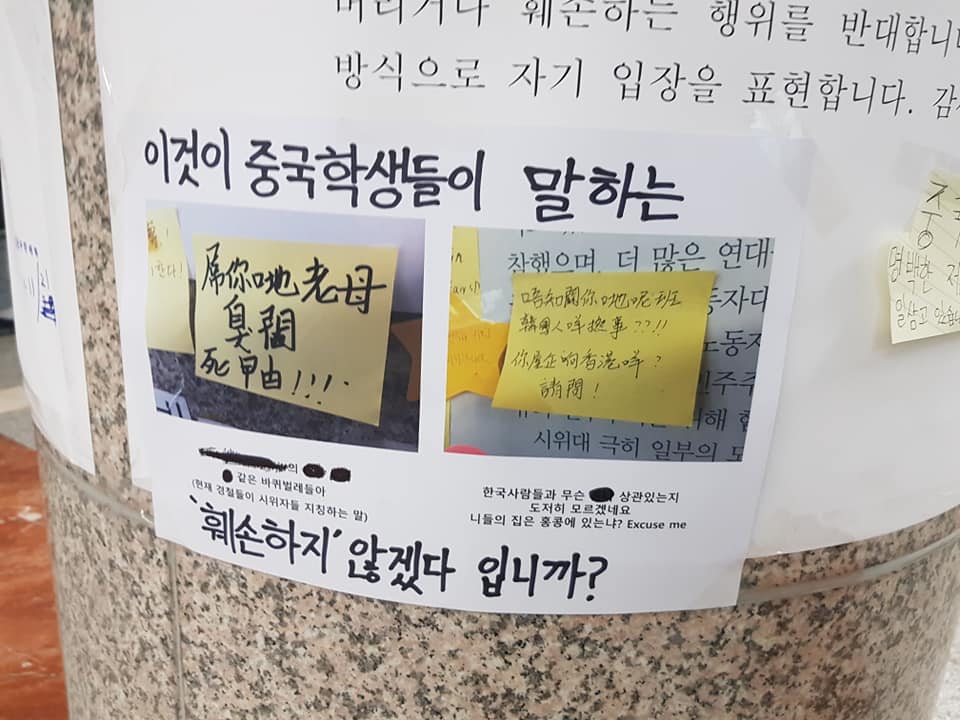 버리거나 훼손하는 행위를 반대합니다
방식으로 자기 입장을 표현합니다. 감
이것이 중국학생들이 말하는
屌你哋老母
臭閪
死曱甴!!!.
한다!
찬했으며, 더 많은 연대
동자대
노동자
민주주
시위대 극히 일부의 모
唔知關你哋呢班
韓國人咩撚事??!!
你屋企响香港咩?
請問!
의
같은 바퀴벌레들아
(현재 경찰들이 시위자들 지칭하는 말)
한국사람들과 무슨 상관있는지
도저히 모르겠네요
니들의 집은 홍콩에 있는냐? Excuse me
'훼손하지' 않겠다 입니까?
중국
명백한
일삼고 있습니